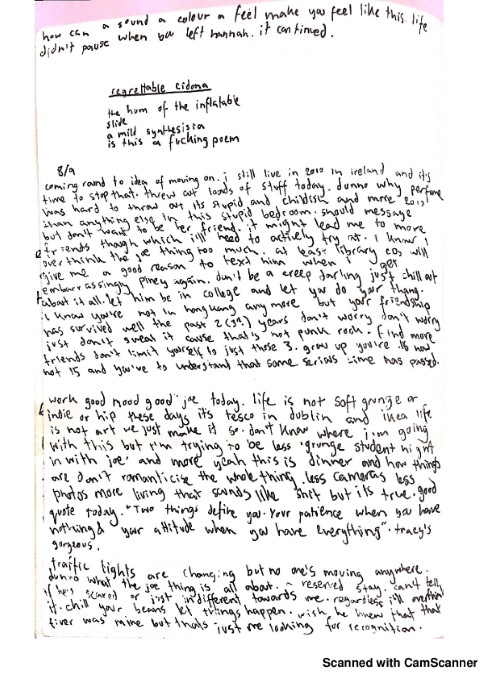 how can a sound a colour a feel make you feel like this. life
didn't pause when you left hannah. it continued.
regrettable cidona
the hum of the inflatable
slide
a mild synthesisia
is this a fucking poem
8/9
coming round to idea of moving on. i still live in 2010 in ireland and its
time to stop that. threw out loads of stuff today. dunno why perfume
was hard to throw out its stupid and childish and more 2013
than anything else in this stupid bedroom. should message
but don't want to be her friend. it might lead me to more
friends though which ill need to actively try at. i know i
over think the joe thing too much. at least library cos will
give me a good reason to text him when i get
embarrassingly piney again. don't be a creep darling just chill out
about it all. let him be in college and let you do your thang.
i know you're not in hong kong any more but your friendship
has survived well the past 2 years don't worry don't worry
just don't sweat it cause that's not punk rock. find more
friends don't limit yourself to just those 3. grow up you're 16 now
not 15 and you've to understand that some serious time has passed.
work good mood good joe today. life is not soft grunge or
indie or hip these days its tesco in dublin and ikea life
is not art we just make it so. don't know where i'm going
with this but i'm trying to be less 'grunge student night
in with joe' and more yeah this is dinner and how things
are don't romanticize the whole thing. less cameras less
photos more living that sounds like shit but its true. good
quote today. "Two things define you. Your patience when you have
nothing & your attitude when you have everything". tracy's
gorgeous.
traffic lights are changing but no one's moving anywhere.
dunno what the joe thing is all about. reserved stay. can't tell
if he's scared or just indifferent towards me. regardless i'll overthink
it. chill your beans let things happen. wish he knew that that
fiver was mine but thats just me looking for recognition.
Scanned with CamScanner